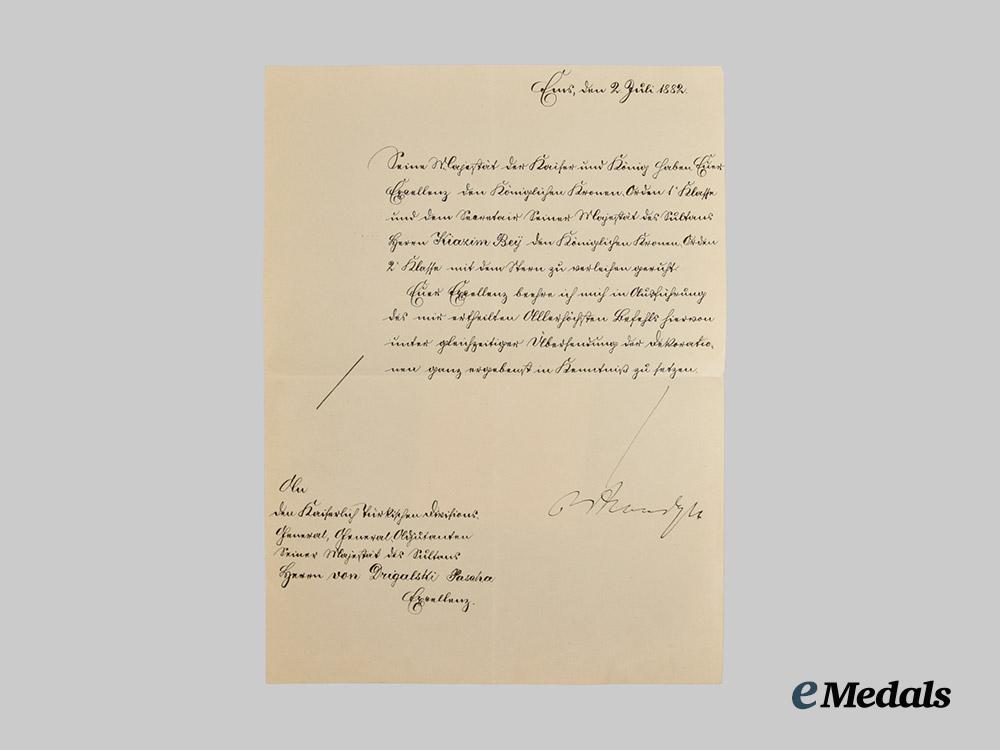 Ems, den 2 Juli 1882.
Seine Majestät der Kaiser und König haben Euer
Excellenz den Königlichen Kronen-Orden 1' Klasse
und dem Secretair Seiner Majestät des Sultans
Herrn Kiazim Bey den Königlichen Kronen-Orden
2' Klasse mit dem Stern zu verleihen geruht.
Euer Excellenz beehre ich mich in Ausführung
des mir ertheilten Allerhöchsten Befehls hiervon
unter gleichzeitiger Übersendung der Dekoratio-
nen ganz ergebenst in Kenntniß zu setzen.
An
den Kaiserlich Türkischen Divisions-
General, General Adjutanten
Seiner Majestät des Sultans
Herrn von Drigalski Pascha
Excellenz.
eMedals